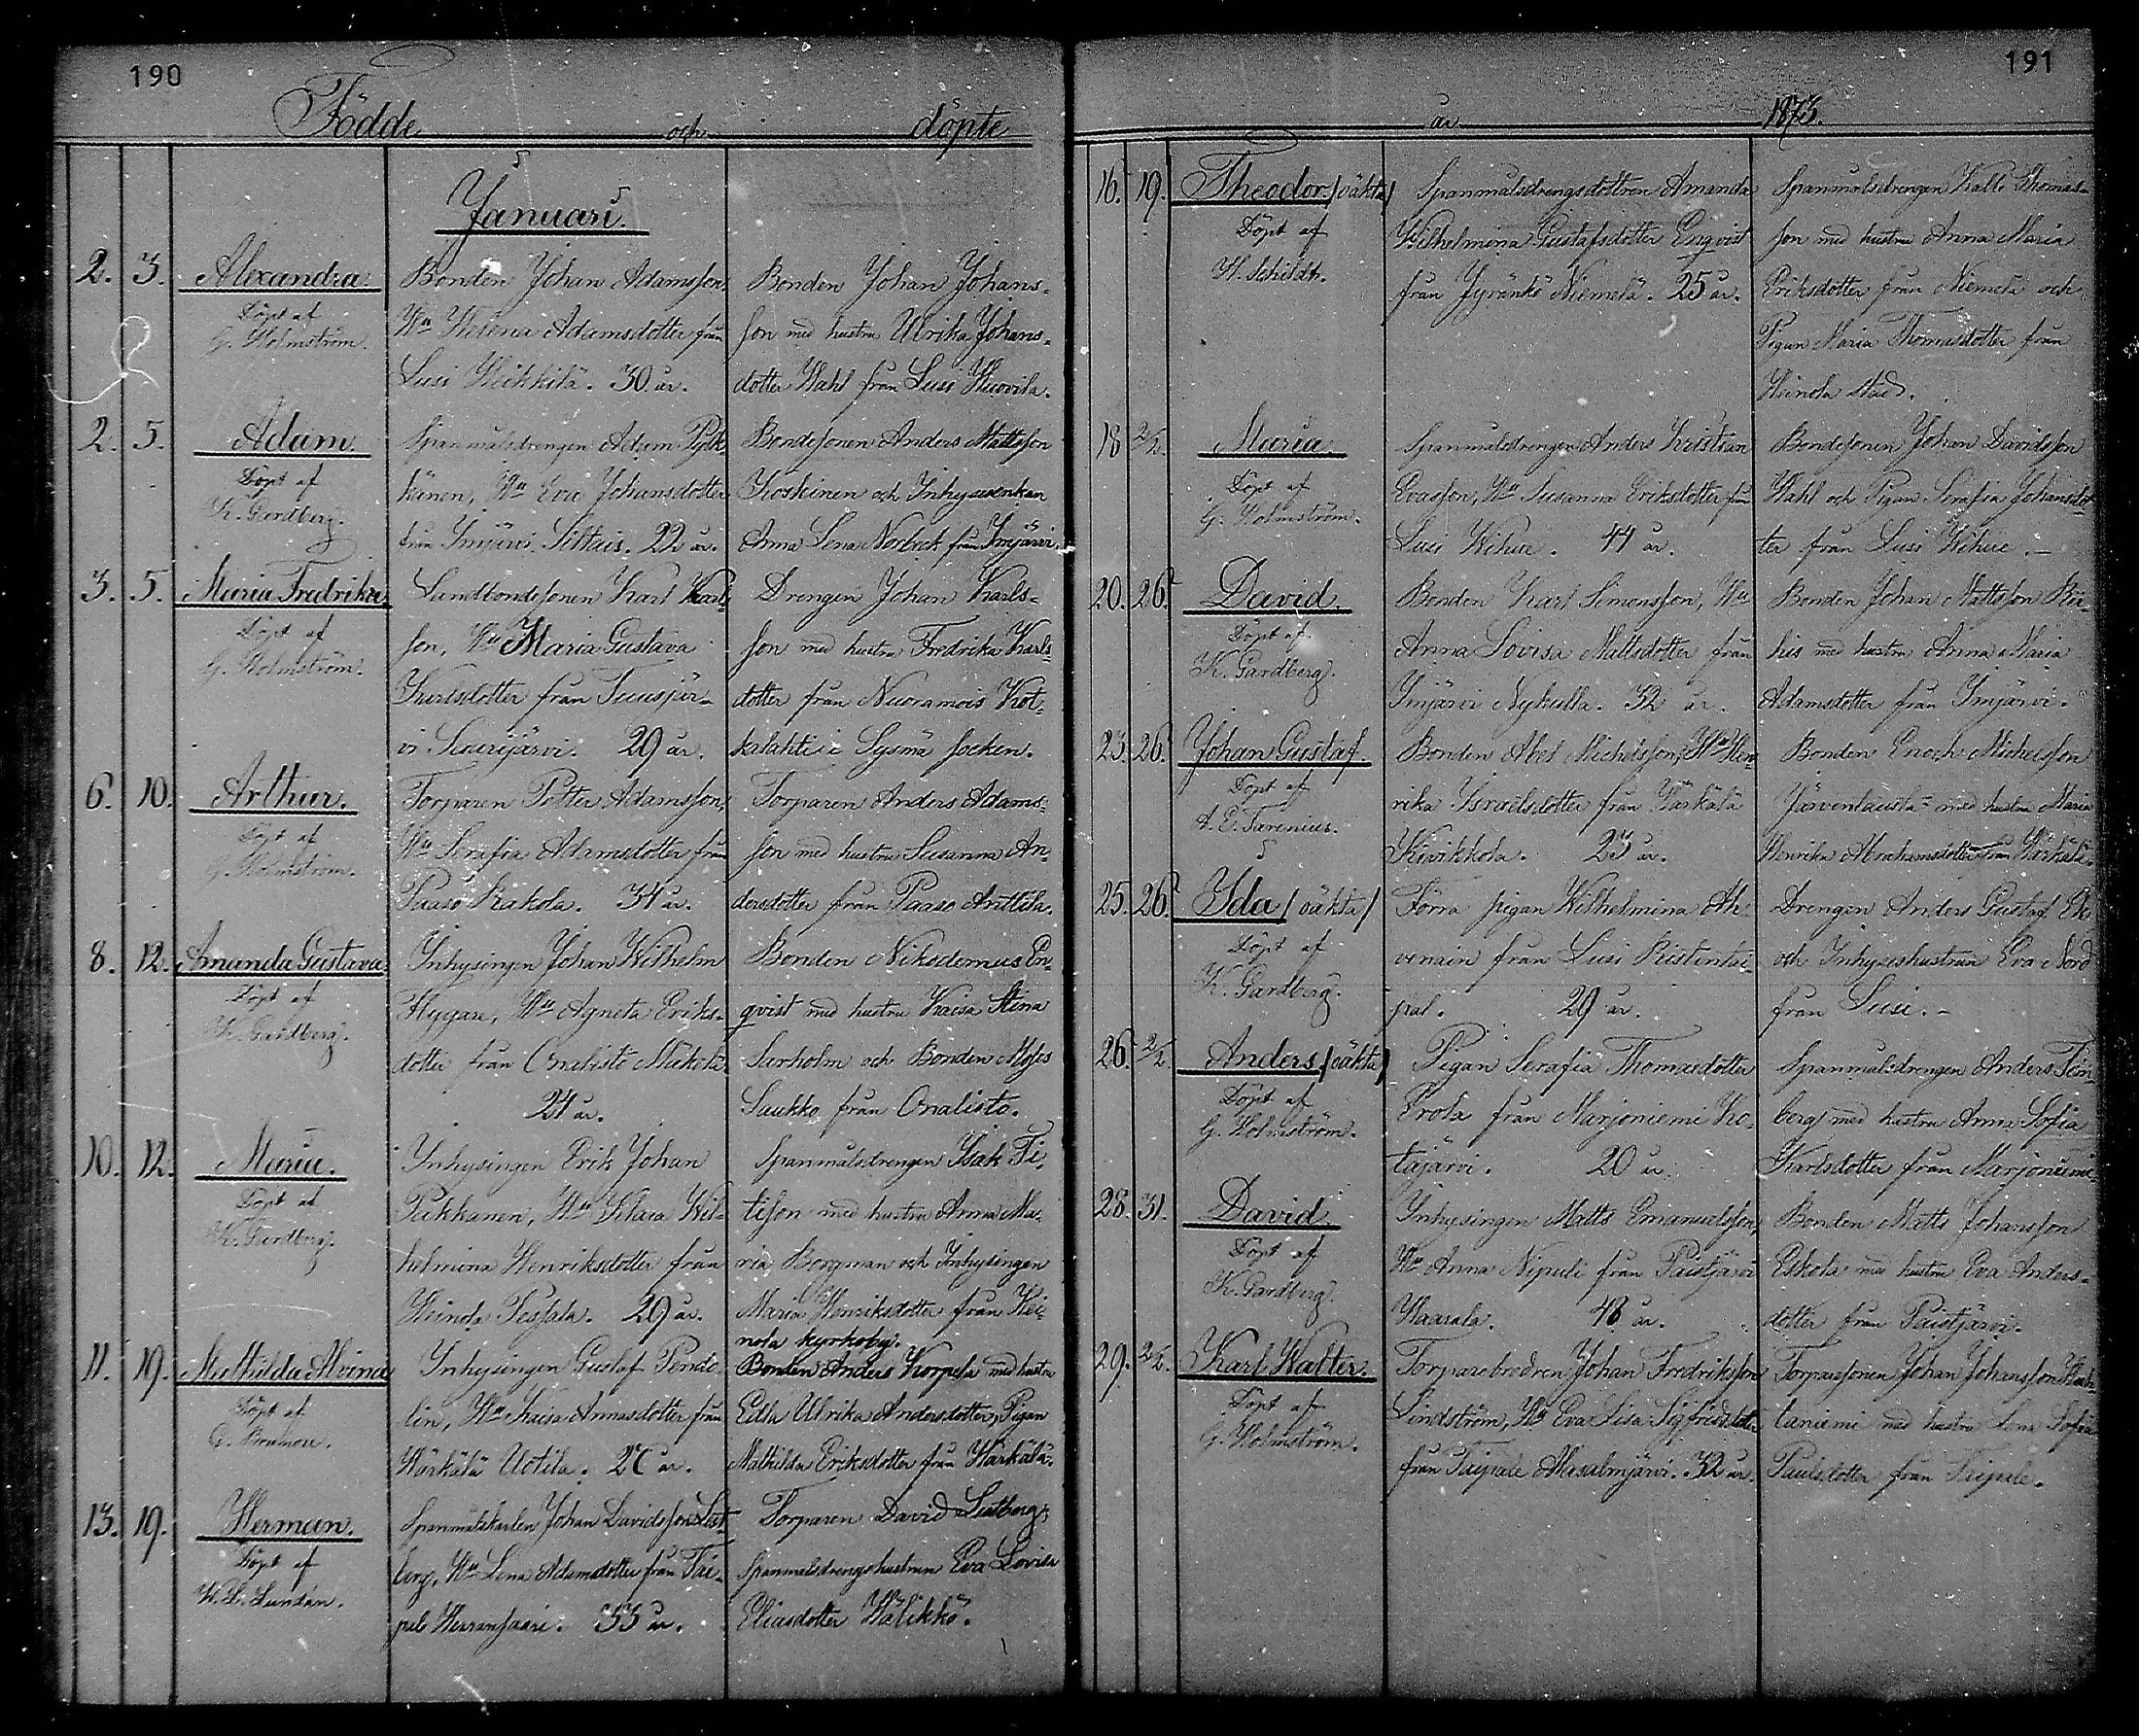 190
Födde och döpte
Januari.
2. 3. Alexandra.
Döpt af
G. Holmström.
Bonden Johan Adamsson,
Hu Helena Adamsdotter från
Lusi Heikkilä. 30 år.
Bonden Johan Johans-
son med hustru Ulrika Johans-
dotter Wahl från Lusi Huovila.
2. 5. Adam.
Döpt af
K. Gardberg.
Spanmålsdrengen Adam Pylk-
känen, Hu Eva Johansdotter
från Imjärvi Siltais. 22 år.
Bondesonen Anders Mattsson
Koskinen och Inhysesenkan
Anna Lena Norbeck från Imjärvi.
3. 5. Maria Fredrika.
Döpt af
G. Holmström.
Landbondesonen Karl Karls-
son, Hu Maria Gustava
Karlsdotter från Tuusjär-
vi Suurijärvi. 29 år.
Drengen Johan Karls-
son med hustru Fredrika Karls-
dotter från Nuoramois Kot-
kalahti i Sysmä socken.
6. 10. Arthur.
Döpt af
G. Holmström.
Torparen Petter Adamsson,
Hu Serafia Adamsdotter från
Paaso Kakola. 34 år.
Torparen Anders Adams-
son med hustru Susanna An-
dersdotter från Paaso Anttila.
8. 12. Amanda Gustava.
Döpt af
K. Gardberg.
Inhysingen Johan Wilhelm
Flygare, Hu Agneta Eriks-
dotter från Onalisto Mäkelä
24 år.
Bonden Nikodemus En-
qvist med hustru Kaisa Stina
Sarholm och Bonden Moses
Saukko från Onalisto.
10. 12. Maria.
Döpt af
K. Gardberg.
Inhysingen Erik Johan
Pukkanen, Hu Klara Wil-
helmina Henriksdotter från
Heinola Pessala. 29 år.
Spanmålsdrengen Isak Ti-
tisson med hustru Anna Ma-
ria Borgman och Inhysingen
Maria Henriksdotter från Hei-
nola kyrkoby.
11. 19. Mathilda Alvina
Döpt af
G. Brumon.
Inhysingen Gustaf Pendo-
lin, Hu Kaisa Annasdotter från
Härkälä Uotila. år.
Bonden Anders Korpela med hustru
Edla Ulrika Andersdotter, Pigan
Mathilda Eriksdotter från Härkälä.
13. 19. Herman.
Döpt af
Spanmålskarlen Johan Davidsson List-
berg, Hu Lena Adamsdotter från Tai-
pale Herransaari. 33 år.
Torparen David Listberg,
Spanmålsdrengshustrun Eva Lovisa
Eliasdotter Hälikkö.
191
år 1873.
16. 19. Theodor /oäkta/
Döpt af
H. Schildt.
Spanmålsdrengsdottren Amanda
Wilhelmina Gustafsdotter Enqvist
från Jyränkö Niemelä. 25 år.
Spanmålsdrengen Kalle Thomas-
son med hustru Anna Maria
Eriksdotter från Niemelä och
Pigan Maria Thomasdotter från
Heinola stad.
18 2/2. Maria.
Döpt af
G. Holmström.
Spanmålsdrengen Anders Kristian
Evasson, Hu Susanna Eriksdotter från
Lusi Wihuri. 44 år.
Bondesonen Johan Davidsson
Wahl och Pigan Serafia Johansdot-
ter från Lusi Wihuri. –
20. 26. David.
Döpt af
K. Gardberg.
Bonden Karl Simonsson, Hu
Anna Lovisa Mattsdotter från
Imjärvi Nykulla. 32 år.
Bonden Johan Mattsson Rii-
his med hustru Anna Maria
Adamsdotter från Imjärvi.
23. 26. Johan Gustaf.
Döpt af
A. E. Tarenius.
Bonden Abel Michelsson, Hu Hen-
rika Israelsdotter från Härkälä
Kivikkola. 23 år.
Bonden Enoch Michelsson
Järventausta med hustru Maria
Henrika Abrahamsdotter från Härkälä.
25. 26. Ida /oäkta/
Döpt af
K. Gardberg.
Förra pigan Wilhelmina Ah-
venain från Lusi Ristintai-
pal. 29 år.
Drengen Anders Gustaf Ek
och Inhyseshustrun Eva Nord
från Lusi. –
26. 2/2. Anders /oäkta/
Döpt af
G. Holmström.
Pigan Serafia Thomasdotter
Erola från Marjoniemi Ko-
tajärvi. 20 år.
Spanmålsdrengen Anders
berg med hustru Anna Sofia
Karlsdotter från Marjoniemi.
28. 31. David.
Döpt af
K. Gardberg.
Inhysingen Matts Emanuelsson,
Hu Anna Nipuli från Paistjärvi
Haarala. 48 år.
Bonden Matts Johansson
Eskola med hustru Eva Anders-
dotter från Paistjärvi.
29. 2/2. Karl Walter.
Döpt af
G. Holmström.
Torparebrodren Johan Fredriksson
Lindström, Hu Eva Lisa Sigfridsdotter
från Taipale Ahisalmjärvi. 32 år.
Torparesonen Johan Johansson
taniemi med hustru Lena Sofia
Paulsdotter från Taipale.